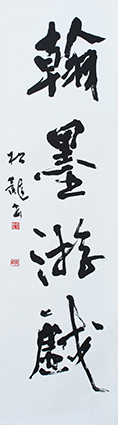 翰墨游戯
松龍書